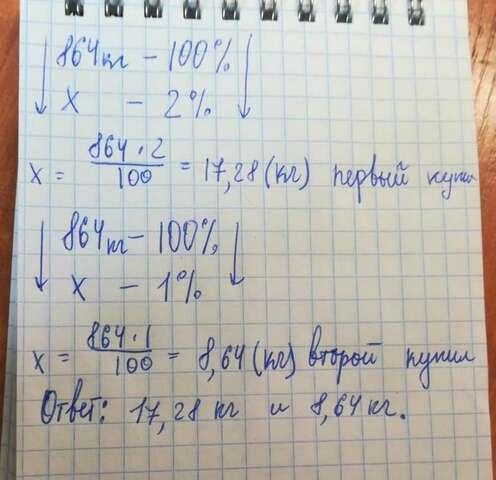 864 кг – 100%
x – 2%
x = 864 · 2 / 100 = 17,28 (кг) первый купил
864 кг – 100%
x – 1%
x = 864 · 1 / 100 = 8,64 (кг) второй купил
Ответ: 17,28 кг и 8,64 кг.